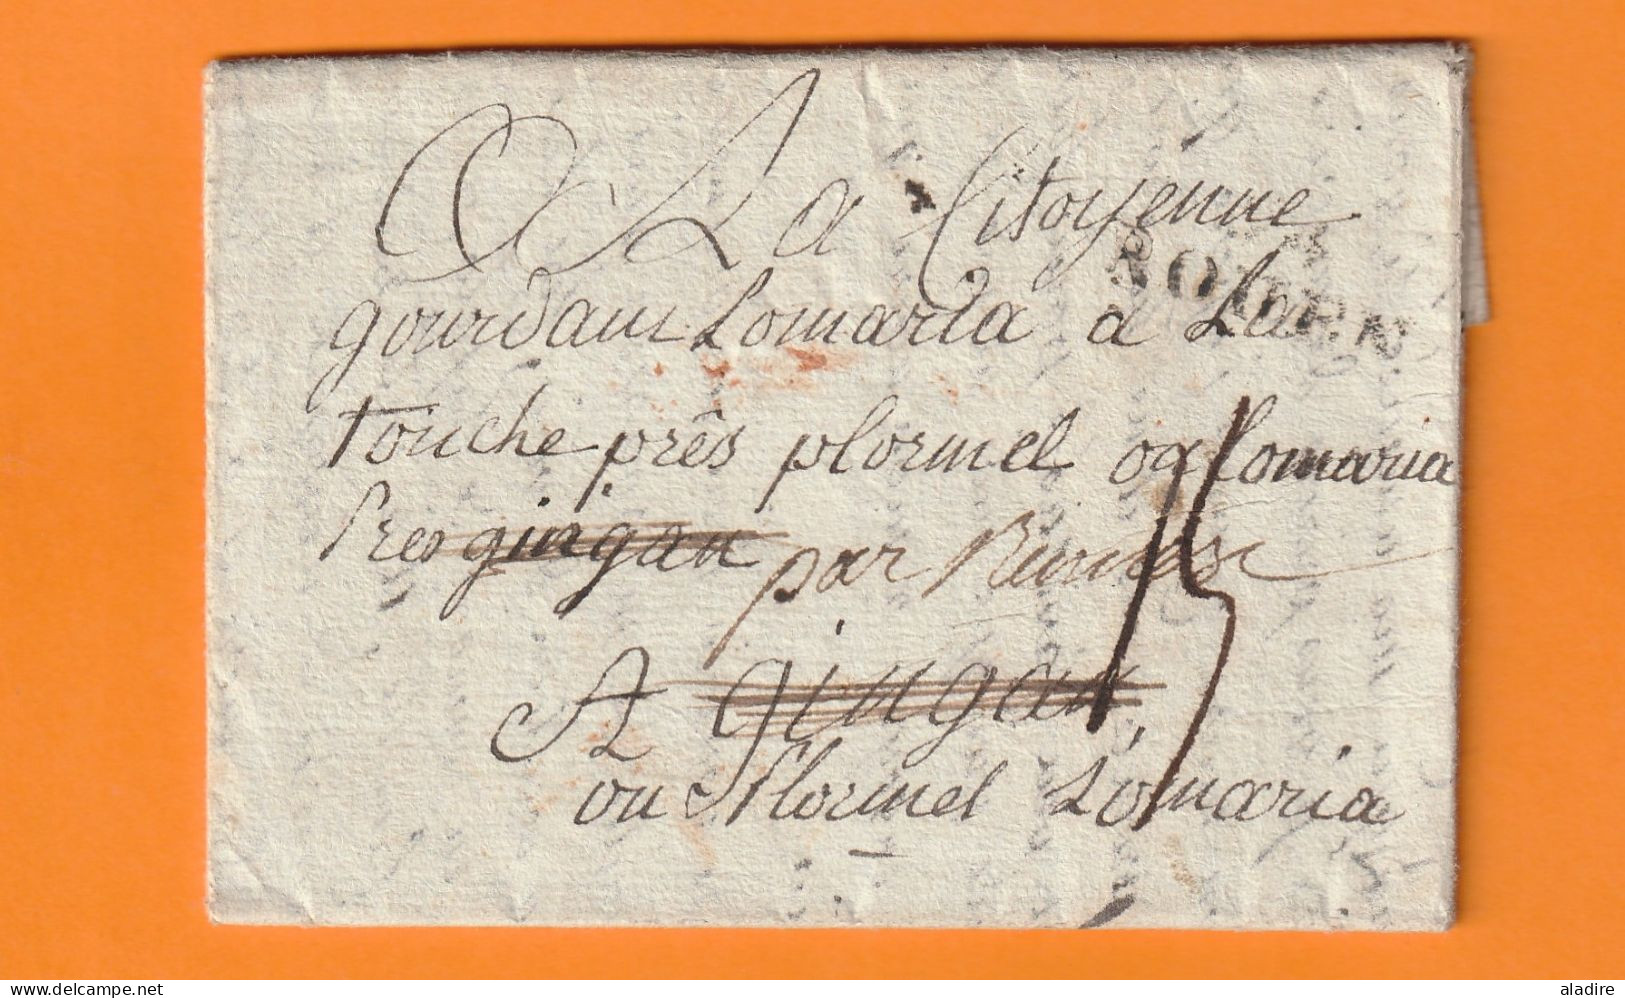 A La Citoyenne
ROUEN
gourdan Lomaria a La
touche près plormel ou lomaria
Pres gingan par Rennes
15
A gingan,
ou plormel Lomaria
delcampe.net
aladire